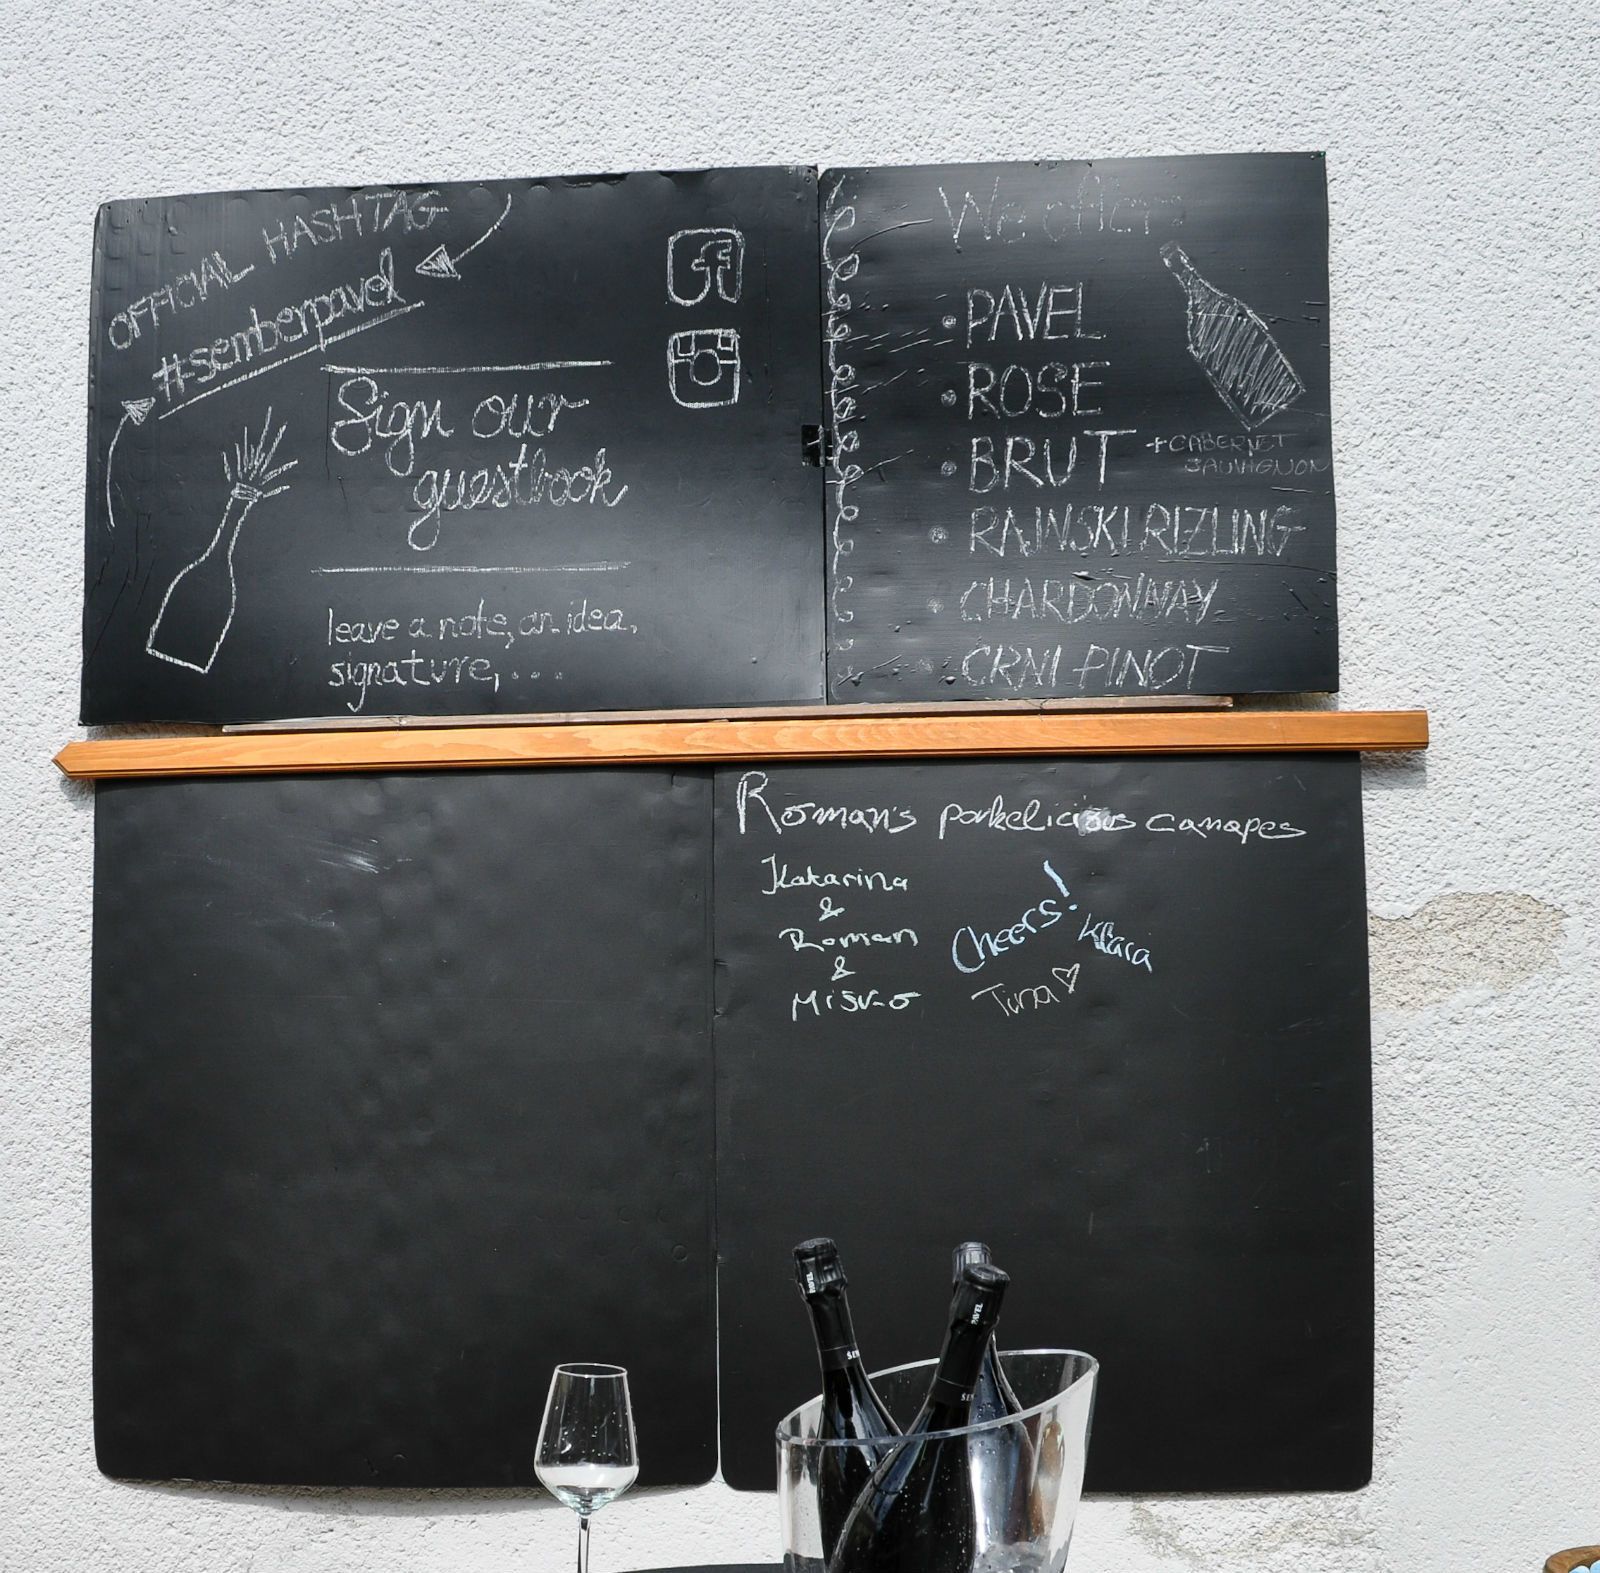 OFFICIAL HASHTAG
#semberpavel
Sign our
guestbook
leave a note, an idea,
signature, ...
We offer:
• PAVEL
• ROSE
• BRUT
+ CABERNET
SAUVIGNON
• RAJNSKI RIZLING
• CHARDONNAY
• CRNI PINOT
Roman's porkelicious canapes
Katarina
&
Roman
&
Cheers!
Klara
Tina ♡
PAVEL
PAVEL